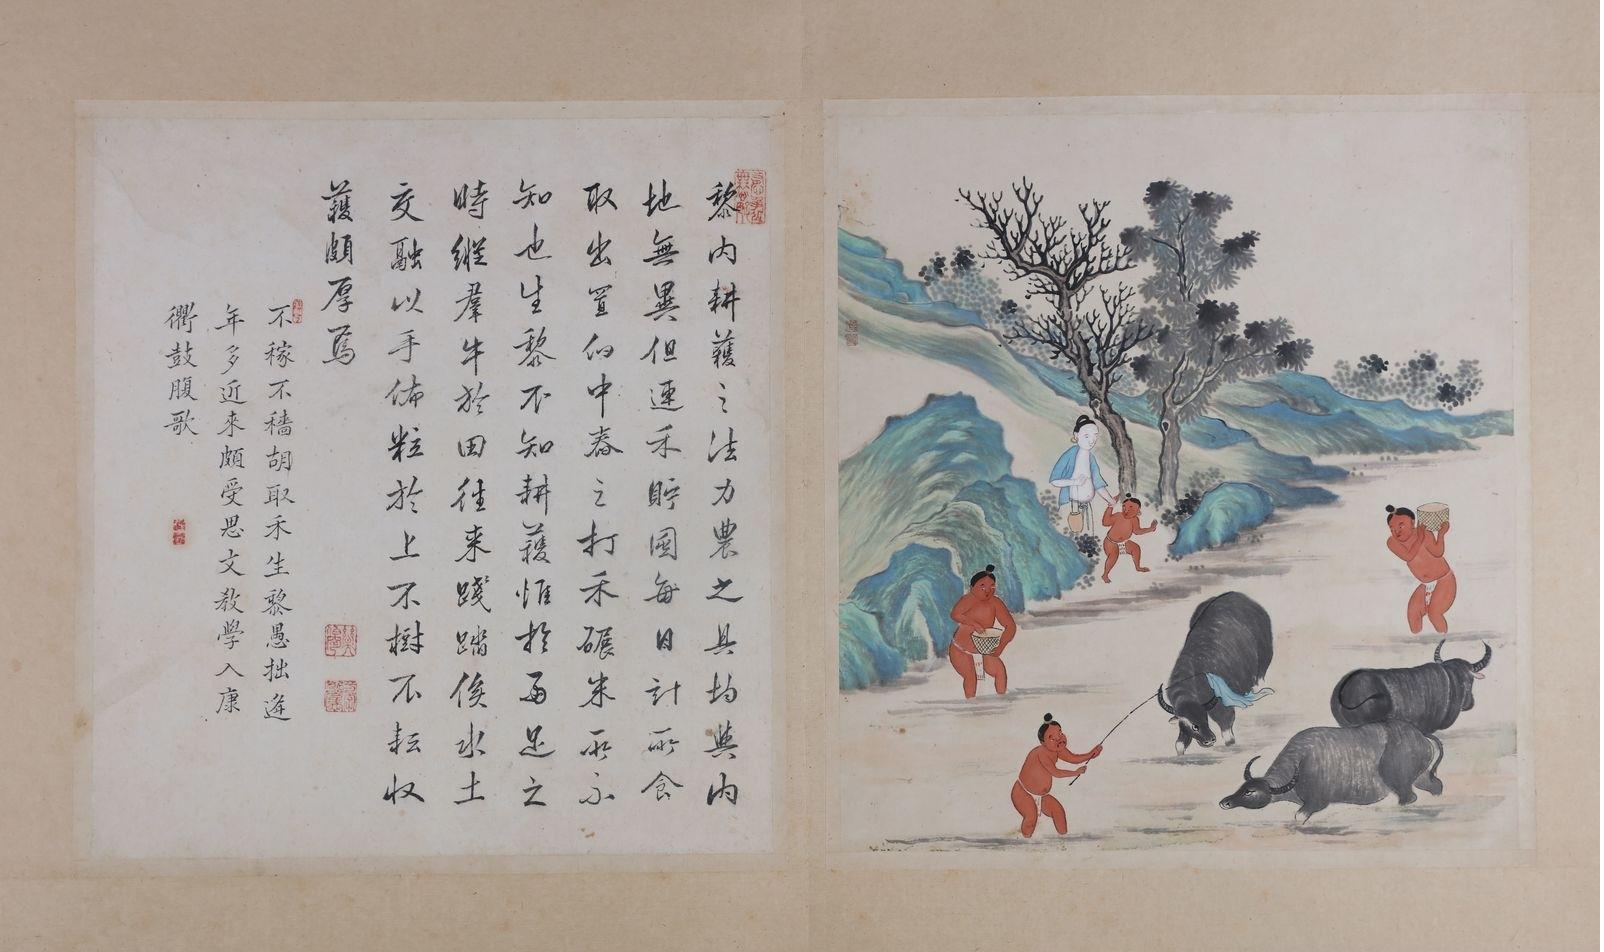 黎内耕穫之法力農之具均與内
地無異但連禾貯囷每日計所食
取出置臼中舂之打禾碾米所不
知也生黎不知耕穫惟於雨足之
時縱羣牛於田往来踐踏俟水土
交融以手佈粒於上不樹不耘收
穫頗厚焉
不稼不穡胡取禾生黎愚拙逢
年多近來頗受思文教學入康
衢鼓腹歌